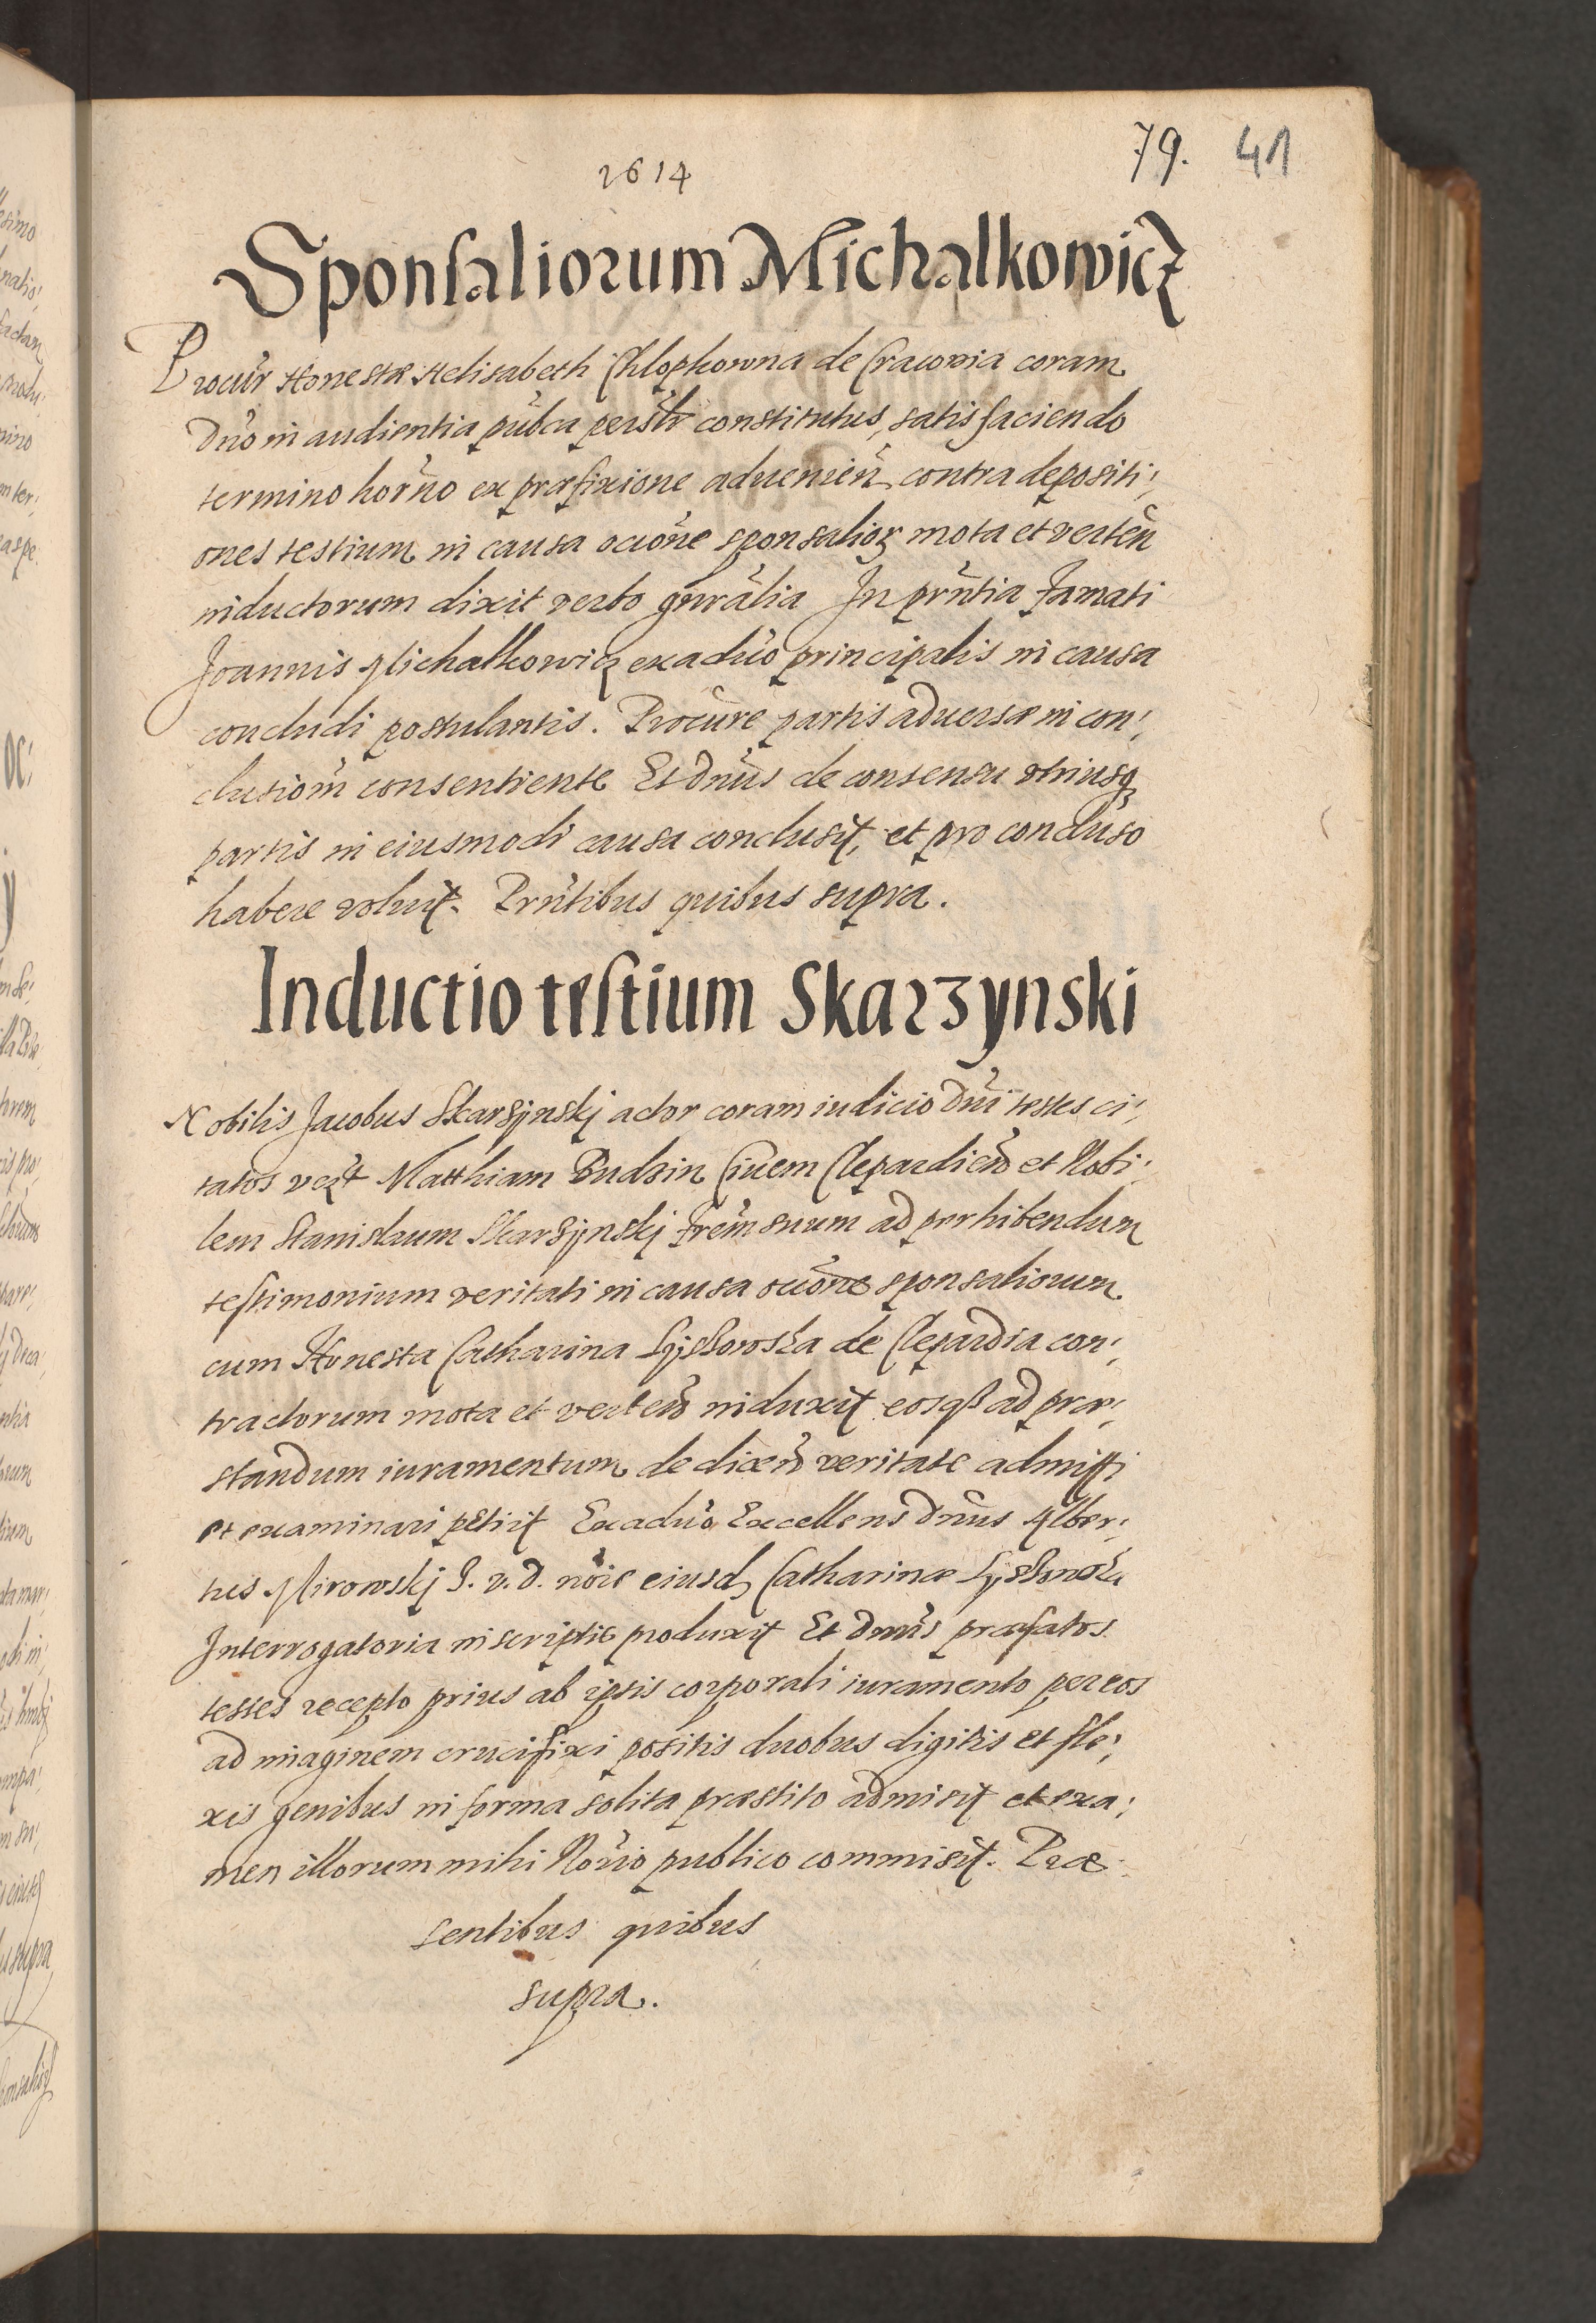 1614
79. 41
Sponsaliorum Michalkowicz
Procũr Honestæ Helisabeth Chlophowna de Cracovia coram
Dño in audientia pũbca persl̃r constitutus, satisfaciendo
termino horño ex præfixione advenieñ contra depositi;
ones testium in causa ocõne sponsalioꝝ mota et verteñ
inductorum dixit verbo gñralia In prñtia Famati
Joannis Michalkowicz exadũo principalis in causa
concludi postulantis. Procũre partis aduersæ in con;
clusioñ consentiente Et Dñus de consensu utriusqꝫ
partis in eiusmodi causa conclusit, et pro concluso
habere voluit. Prñtibus quibus supra.
Inductio testium Skarzynski
Nobilis Jacobus Skarsÿnskj actor coram iudicio Dñi testes ci;
tatos vezt Matthiam Budzin Civem Clepardieñ et Nobi;
lem Stanislaum Skarsÿnskj Frẽm suum ad perhibendum
testimonium veritati in causa ocõne sponsaliorum
cum Honesta Catharina Lÿssowska de Clepardia con;
tractorum mota et verteñ induxit eosqß ad præ;
standum iuramentum de diceñ veritate admitti
et examinari petiit Exaduõ Excellens Dñus Alber;
tus Mirowskj J. v. d. nõie eiusd Catharinæ Lÿssowska
Interrogatoria in scriptis produxit Et Dñus præfatos
testes recepto prius ab ipsis corporali iuramento per eos
ad imaginem crucifixi positis duobus digitis et fle;
xis genibus in forma solita præstito admisit et exa;
men illorum mihi Norio publico commisit. Præ
sentibus quibus
supra.